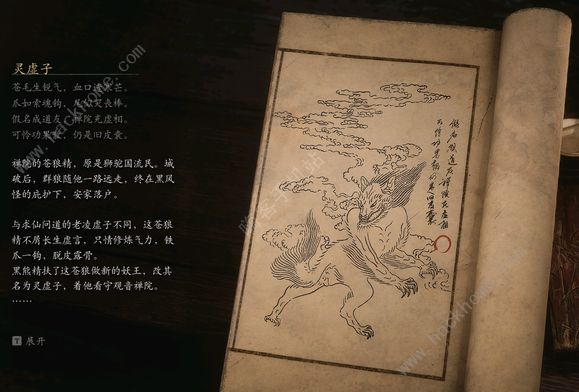 灵虚子
苍毛生锐气，血口迸寒芒。
爪如索魂钩，尾似哭丧棒。
假名成道友，禅院充虚相。
可怜功果薄，仍是旧皮囊。
禅院的苍狼精，原是狮驼国流民。城
破后，群狼随他一路远走，终在黑风
怪的庇护下，安家落户。
与求仙问道的老凌虚子不同，这苍狼
精不屑长生虚言，只情修炼气力，铁
爪一钩，脱皮露骨。
黑熊精扶了这苍狼做新的妖王，改其
名为灵虚子，着他看守观音禅院。
……
T 展开
假名成道友禅院充虚相
可怜功果薄仍是旧皮囊
www.hackhome.com